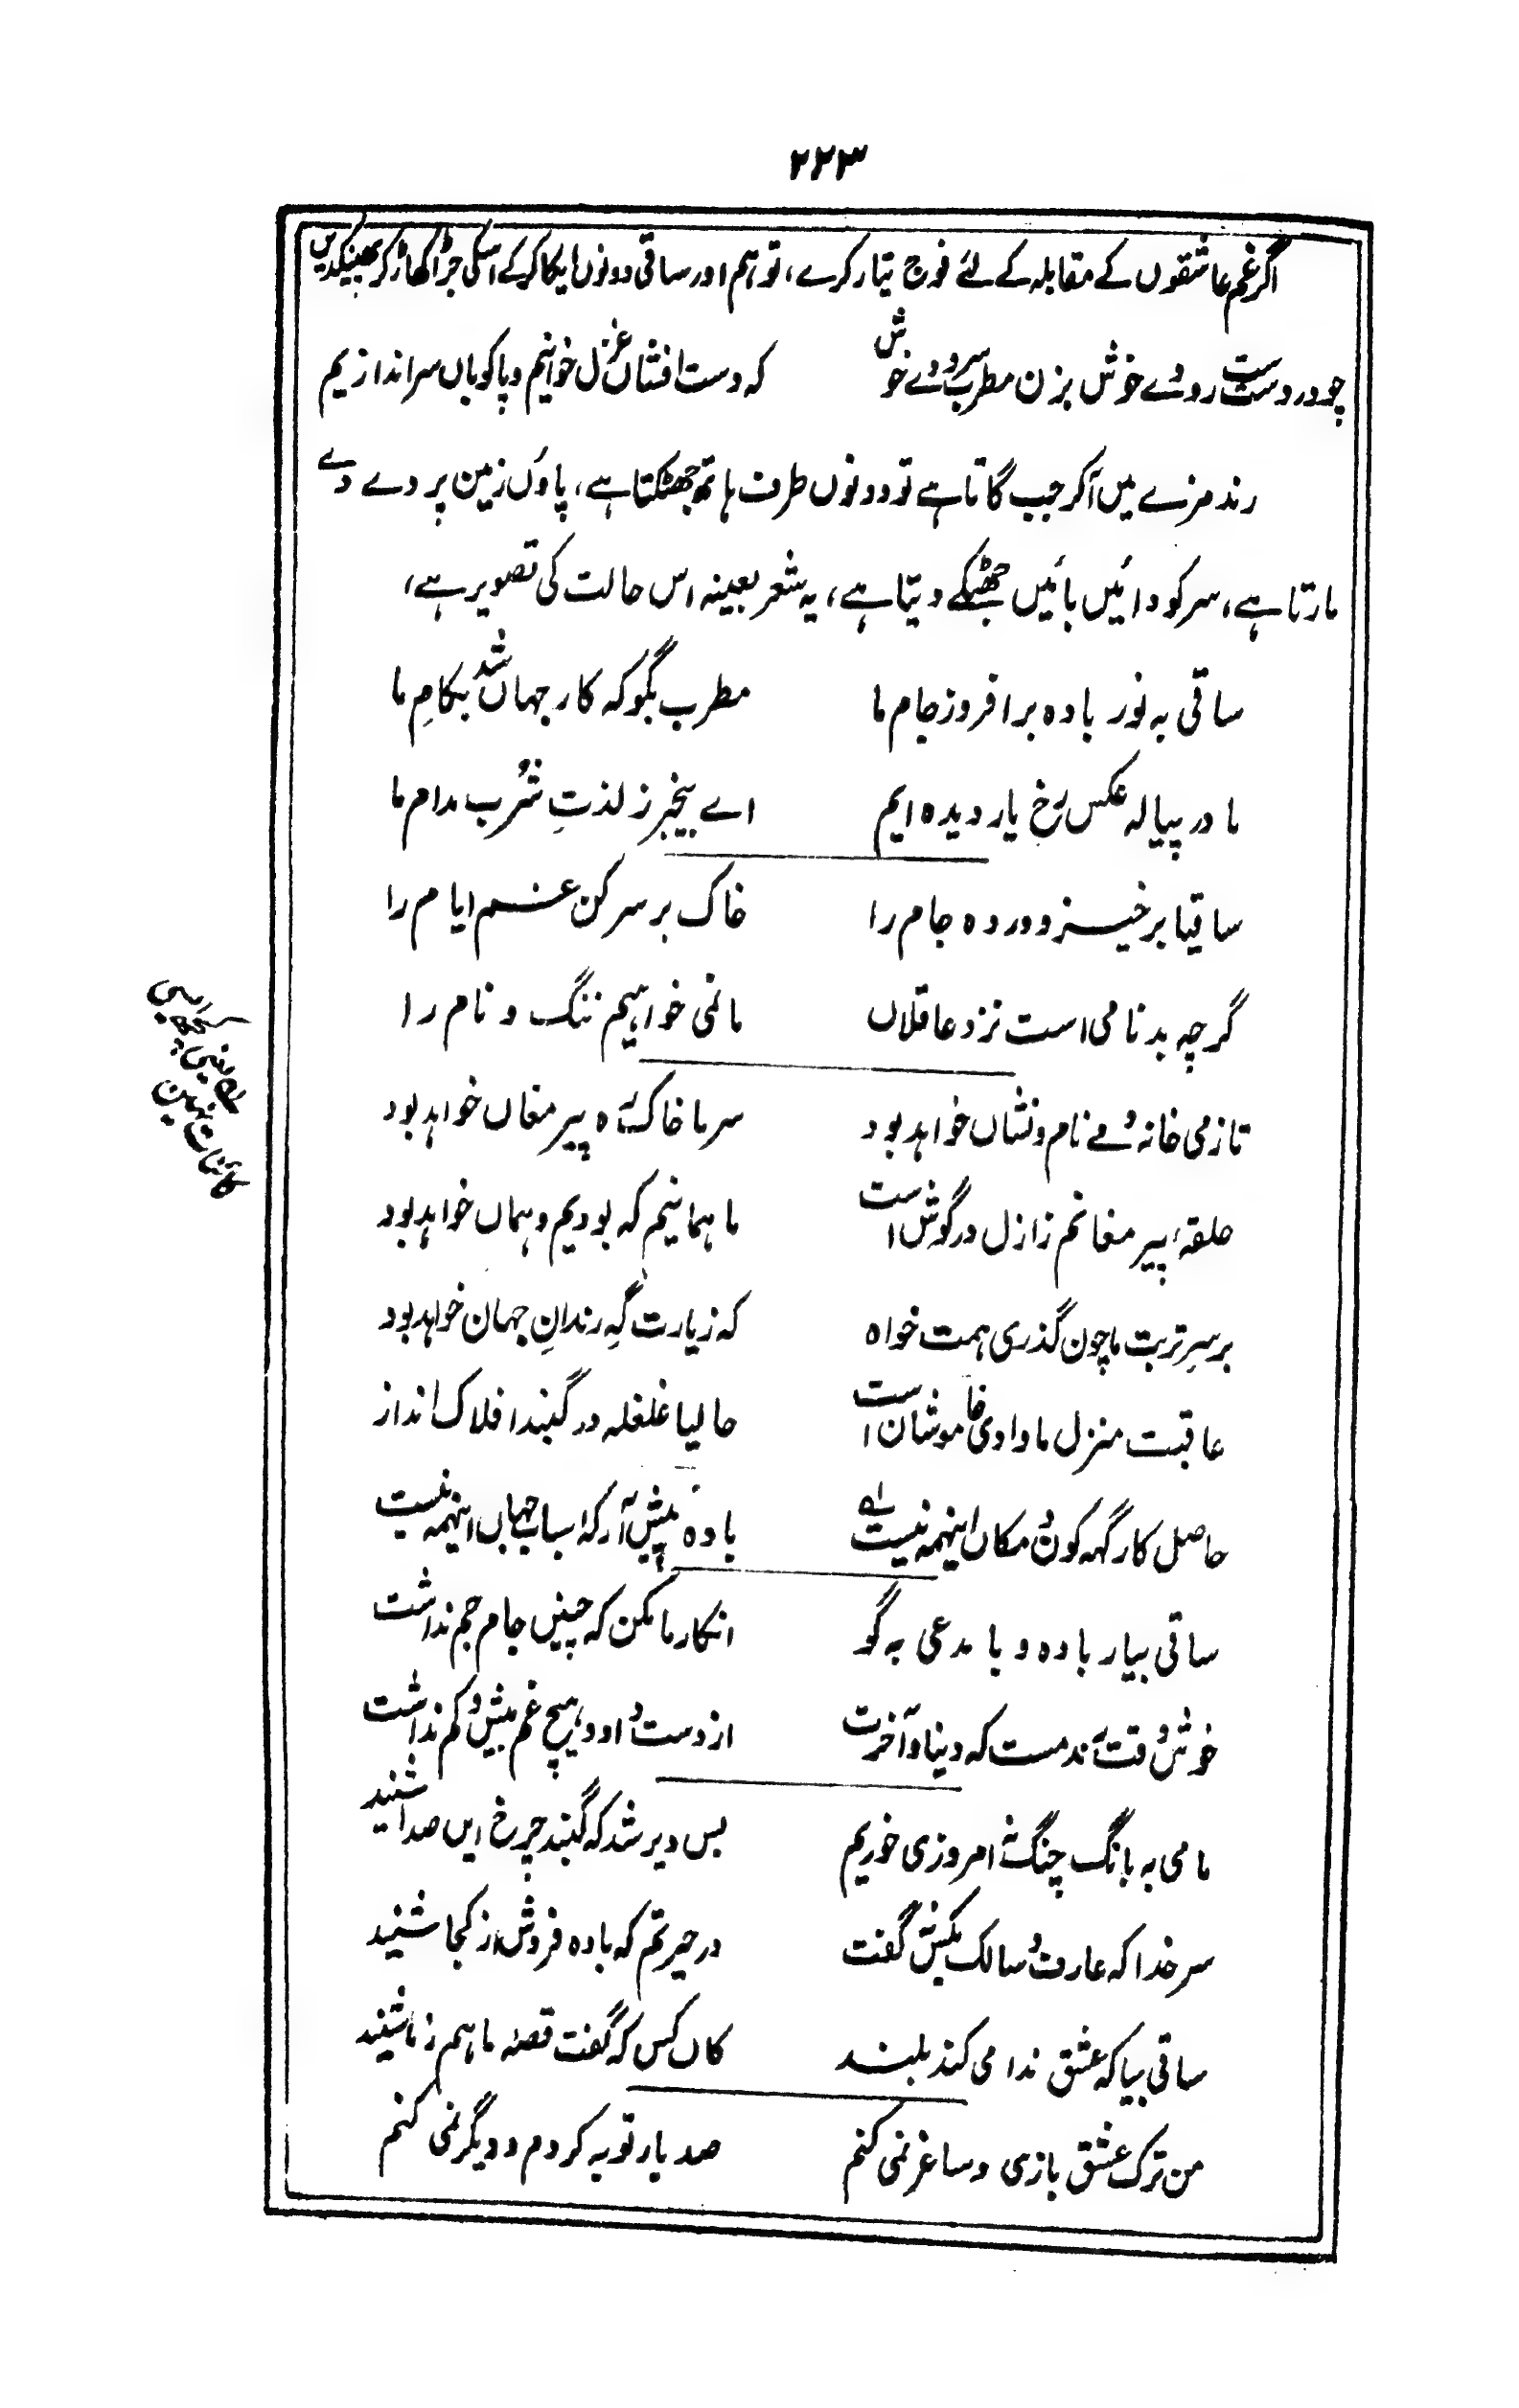 ۲۲۳
اگر غم عاشقوں کے مقابلہ کے لئے فوج تیار کرے، تو ہم اور ساقی دونوں ایکا کرکے اسکی جڑ اکھاڑ کر پھینکدیں
چو در دست ست رودے خوش بزن مطرب سرودے خوش که دست افشاں غزل خوانیم و پا کوباں سر اندازیم
رند مزے میں آکر جب گاتا ہے تو دونوں طرف ہاتھ جھٹکتا ہے، پاؤں زمین پر دے دے
مارتا ہے، سر کو دائیں بائیں جھٹکے دیتا ہے، یہ شعر بعینہ اس حالت کی تصویر ہے،
ساقی به نور باده بر افروز جام ما مطرب بگو که کار جہاں شد بکامِ ما
ما در پیاله عکس رخ یار دیده ایم اے بیخبر ز لذتِ شُرب مدام ما
ساقیا برخیز و در ده جام را خاک بر سر کن غم ایام را
گرچه بدنامی است نزد عاقلاں ما نمی خواهیم ننگ و نام را
تا ز می خانه و مے نام و نشاں خواهد بود سر ما خاک ره پیر مغاں خواهد بود
حلقهٔ پیر مغانم ز ازل در گوش است ما همانیم که بودیم و هماں خواهد بود
بر سرِ تربت ما چون گذری همت خواه که زیارت گهِ رندانِ جهان خواهد بود
عاقبت منزل ما وادی خاموشان است حالیا غلغله در گنبد افلاک انداز
حاصل کارگہه کون و مکاں اینهمه نیست لہ باده پیش آر که اسباب جہاں اینهمه نیست
ساقی بیار باده و با مدعی به گو انکار ما مکن که چنیں جام جم نداشت
خوش وقت رند مست که دنیا و آخرت از دست داد و هیچ غم بیش و کم نداشت
ما می به بانگ چنگ نه امروز می خوریم بس دیر شد که گنبد چرخ ایں صدا شنید
سر خدا که عارف و سالک بکس نگفت در حیرتم که باده فروش از کجا شنید
ساقی بیا که عشق ندا می کند بلند کاں کس که گفت قصه ما هم ز ما شنید
من ترک عشق بازی و ساغر نمی کنم صد بار توبه کردم و دیگر نمی کنم